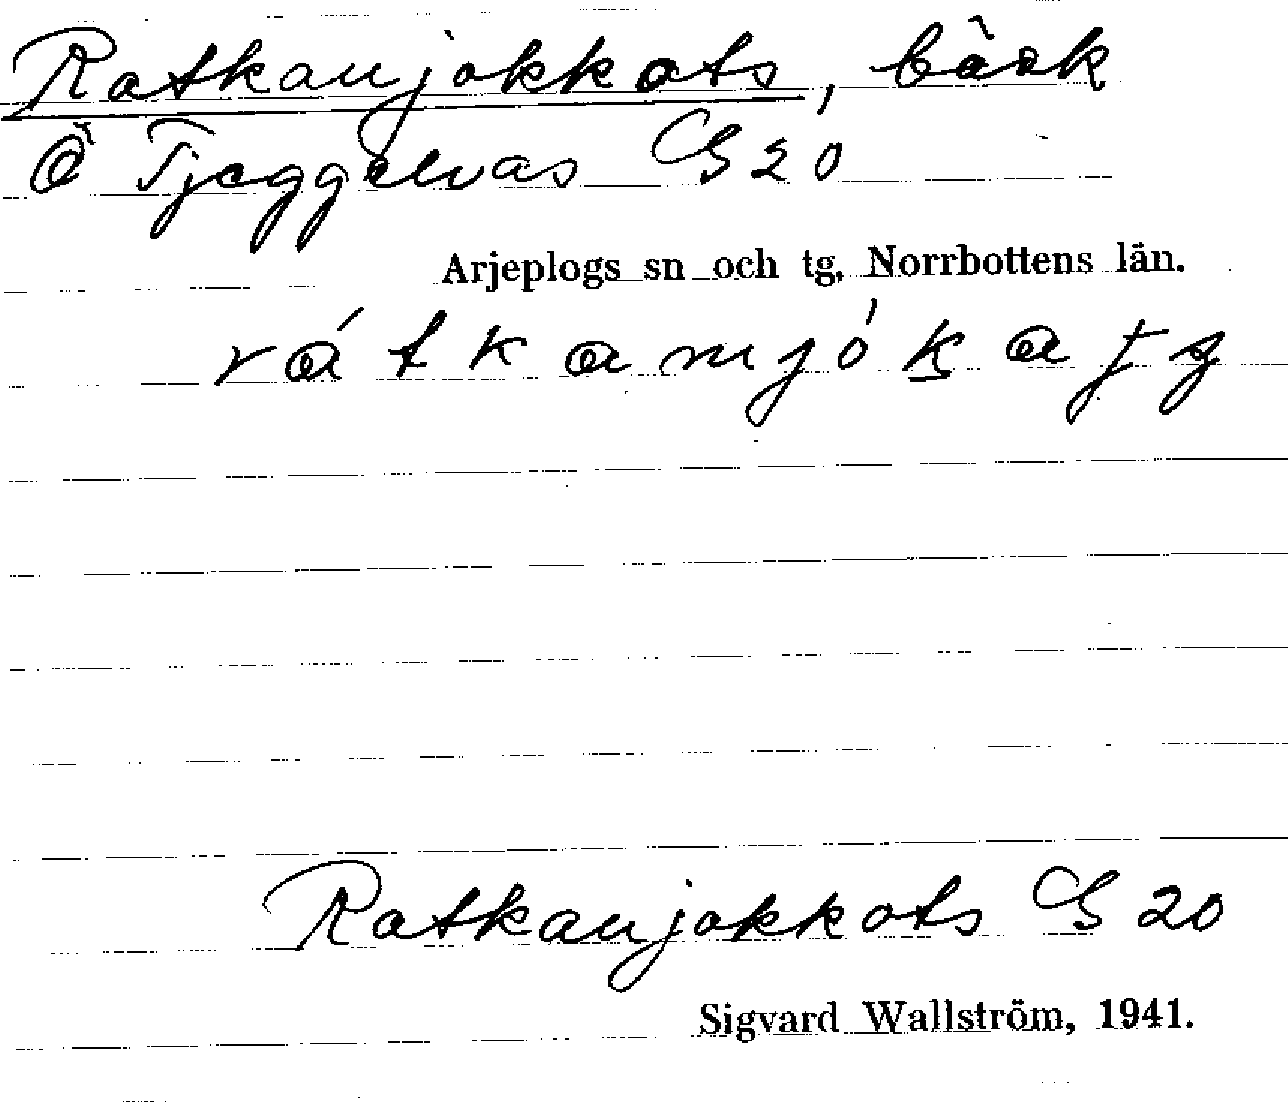 Ratkaujokkots, bäck
Ö Tjeggelvas G 20
Arjeplogs sn och tg, Norrbottens län.
Ratkaujokkots G 20
Sigvard Wallström, 1941.